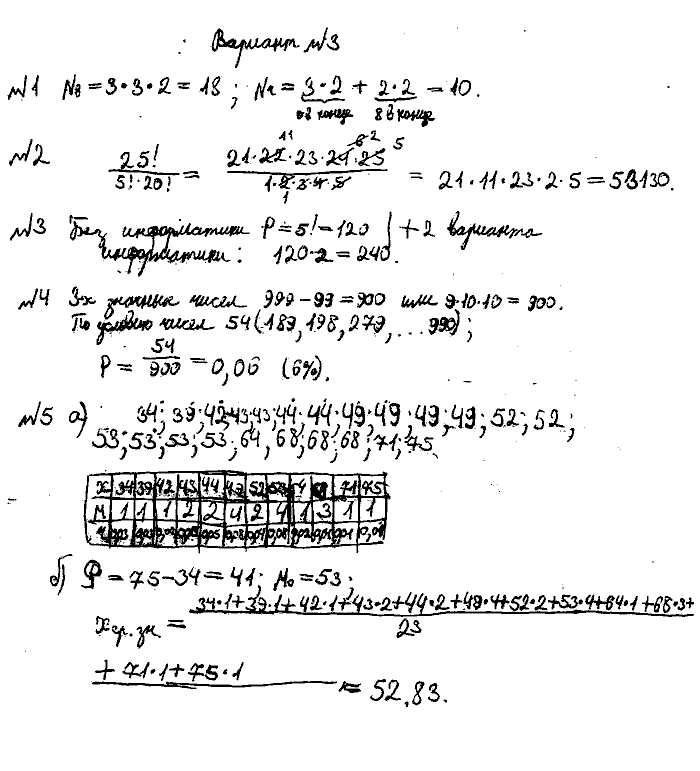 Вариант №3
№1 N₈ = 3·3·2 = 18 ; N₂ = 3·2 + 2·2 = 10.
в конце 8 в конце
№2 25! / 5!·20! = 21·22·23·24·25 / 1·2·3·4·5 = 21·11·23·2·5 = 53130.
№3 Без информатики P = 5! = 120 } + 2 варианта
информатики: 120·2 = 240.
№4 3-х значных чисел 999 – 99 = 900 или 9·10·10 = 900.
По условию чисел 54 (189, 198, 279, ... 990);
P = 54/900 = 0,06 (6%).
№5 а) 34; 39; 42; 43; 43; 44; 44; 49; 49; 49; 49; 52; 52;
53; 53; 53; 53; 64, 68; 68; 68; 71; 75
X 34 39 42 43 44 49 52 53 71 75
M 1 1 1 2 2 4 2 4 1 3 1 1
б) P = 75 – 34 = 41; Mo = 53;
xср.зн = 34·1 + 39·1 + 42·1 + 43·2 + 44·2 + 49·4 + 52·2 + 53·4 + 64·1 + 68·3 + / 23
+ 71·1 + 75·1 ≈ 52,83.